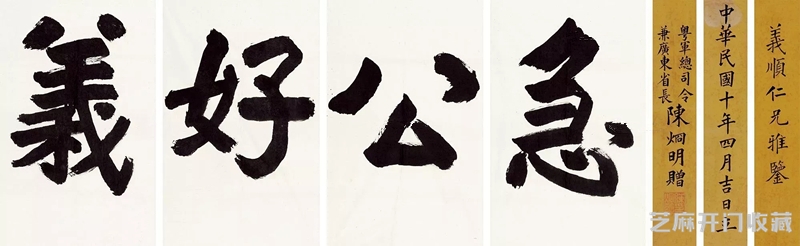 義順仁兄雅鑒
中華民國十年四月吉日立
粵軍總司令
兼廣東省長
陳烱明贈
急公好義
芝麻开门收藏